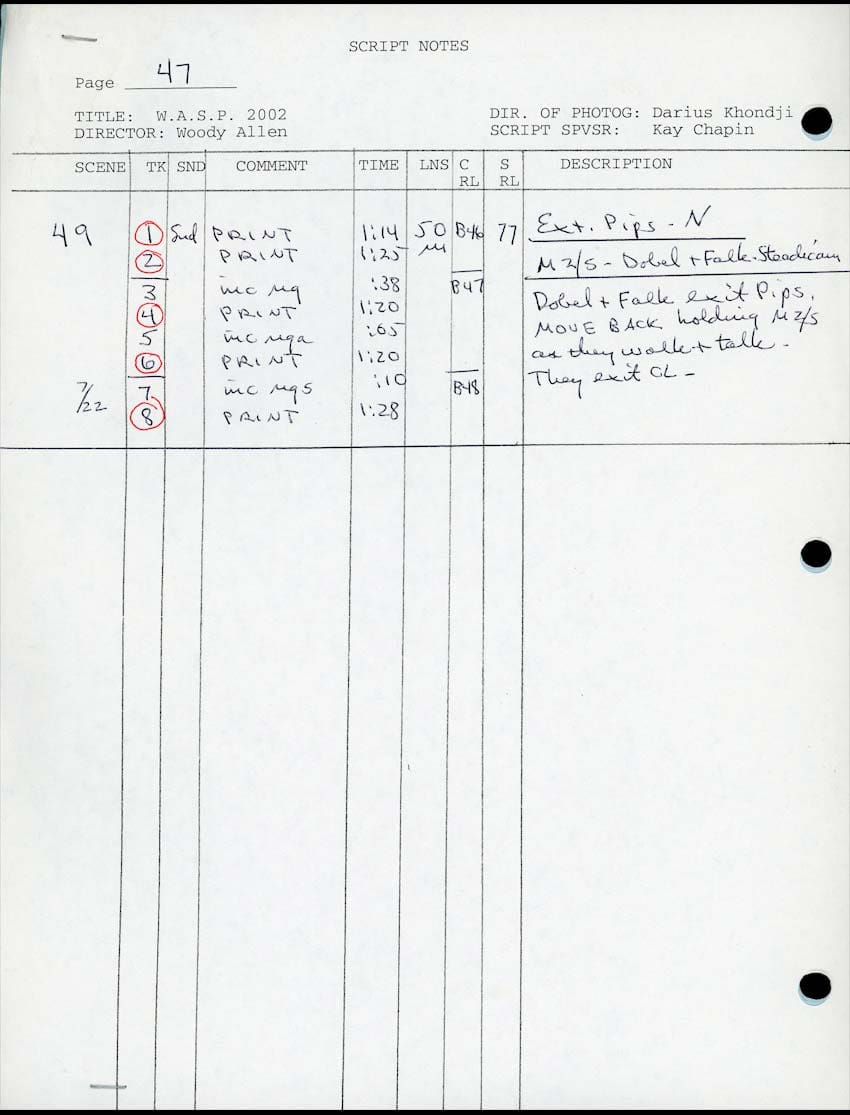 SCRIPT NOTES
Page 47
TITLE: W.A.S.P. 2002 DIR. OF PHOTOG: Darius Khondji
DIRECTOR: Woody Allen SCRIPT SPVSR: Kay Chapin
SCENE TK SND COMMENT TIME LNS C RL S RL DESCRIPTION
49 1 Snd PRINT 1:14 50 B46 77 Ext. Pips - N
2 PRINT 1:25 M 2/S - Dobel + Falk - Steadicam
3 inc :38 B47 Dobel + Falk exit Pips.
4 PRINT 1:20 MOVE BACK holding M 2/S
5 inc :65 as they walk + talk -
6 PRINT 1:20 They exit CL -
7/22 7 inc :10 B48
8 PRINT 1:28